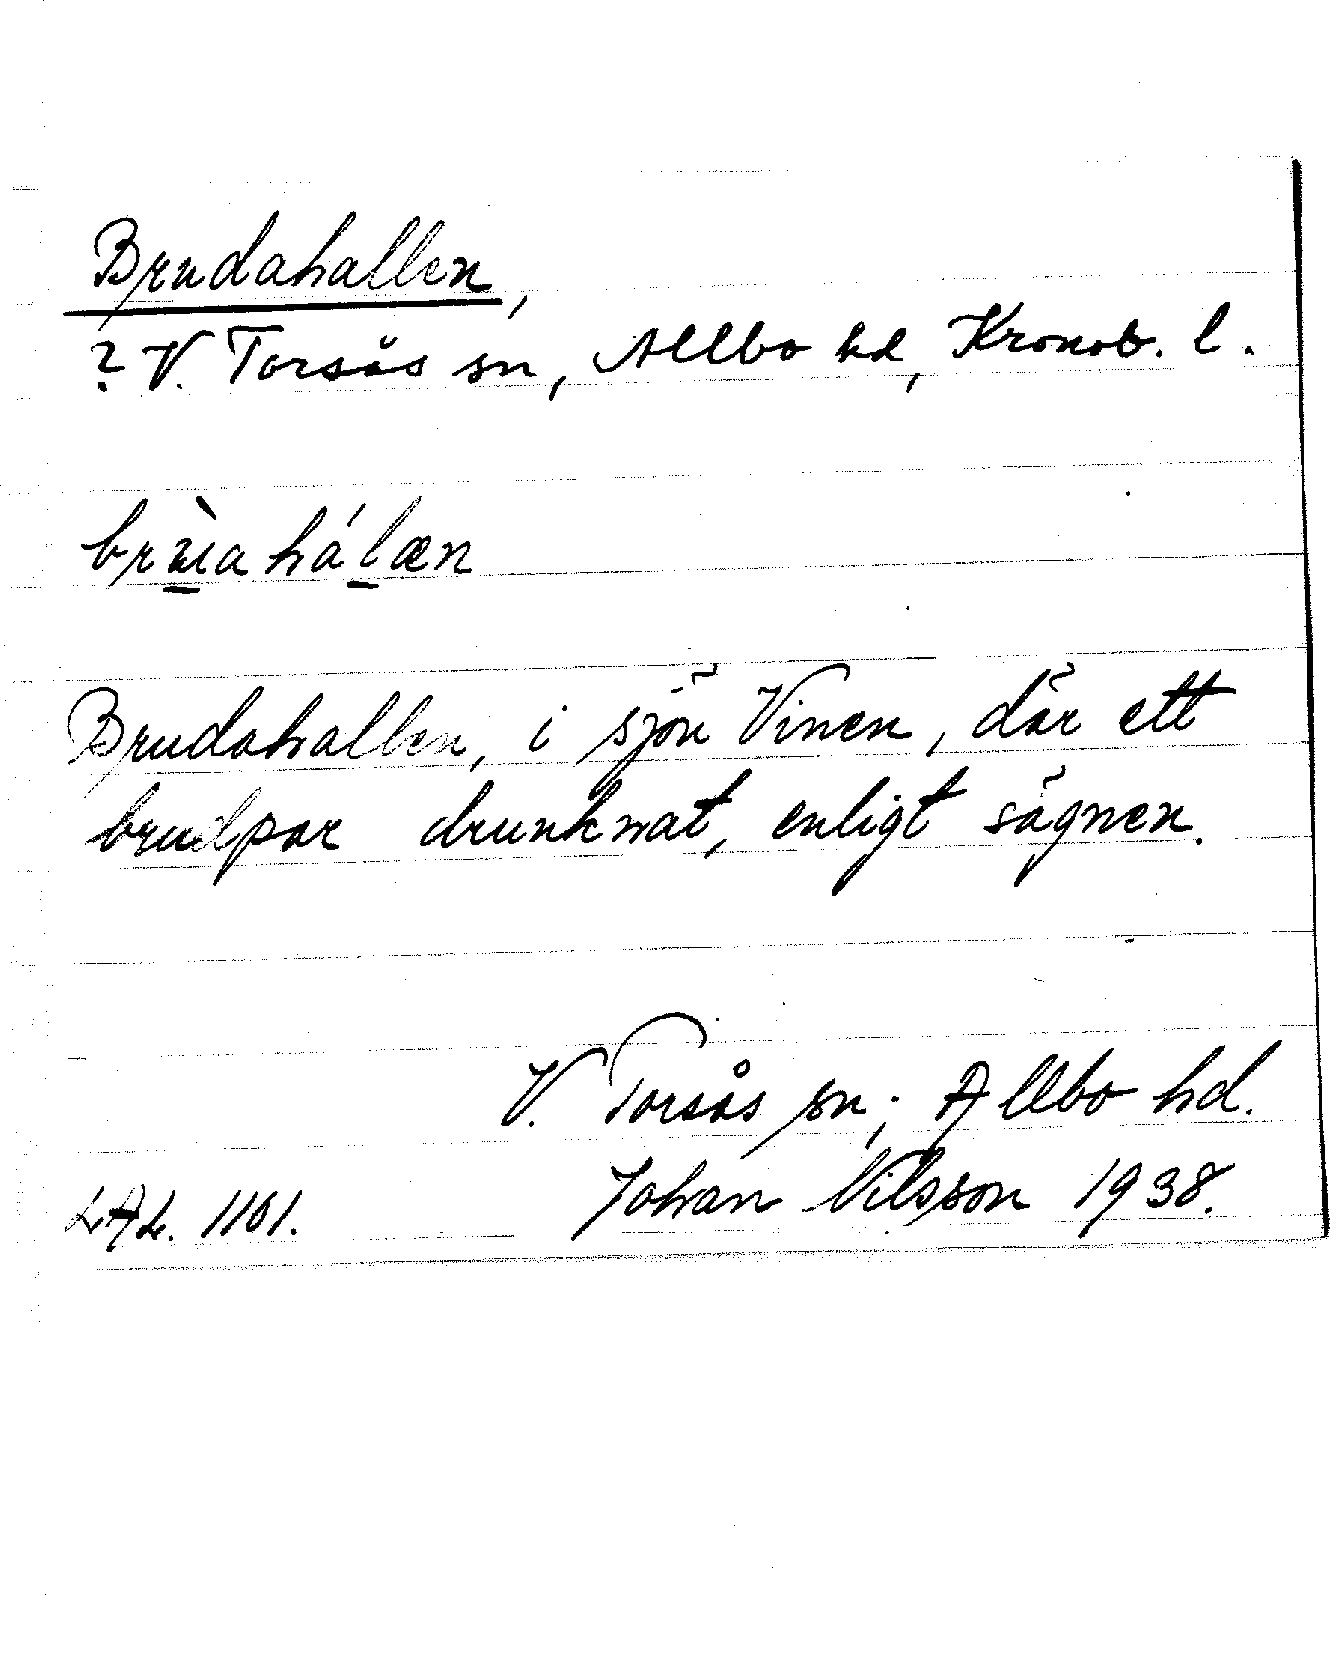 Brudahallen,
? V. Torsås sn, Allbo hd, Kronob. l.
brùahálæn
Brudahallen, i sjön Vinen, där ett
brudpar drunknat, enligt sägnen.
V. Torsås sn; Allbo hd.
LAL. 1161. Johan Nilsson 1938.